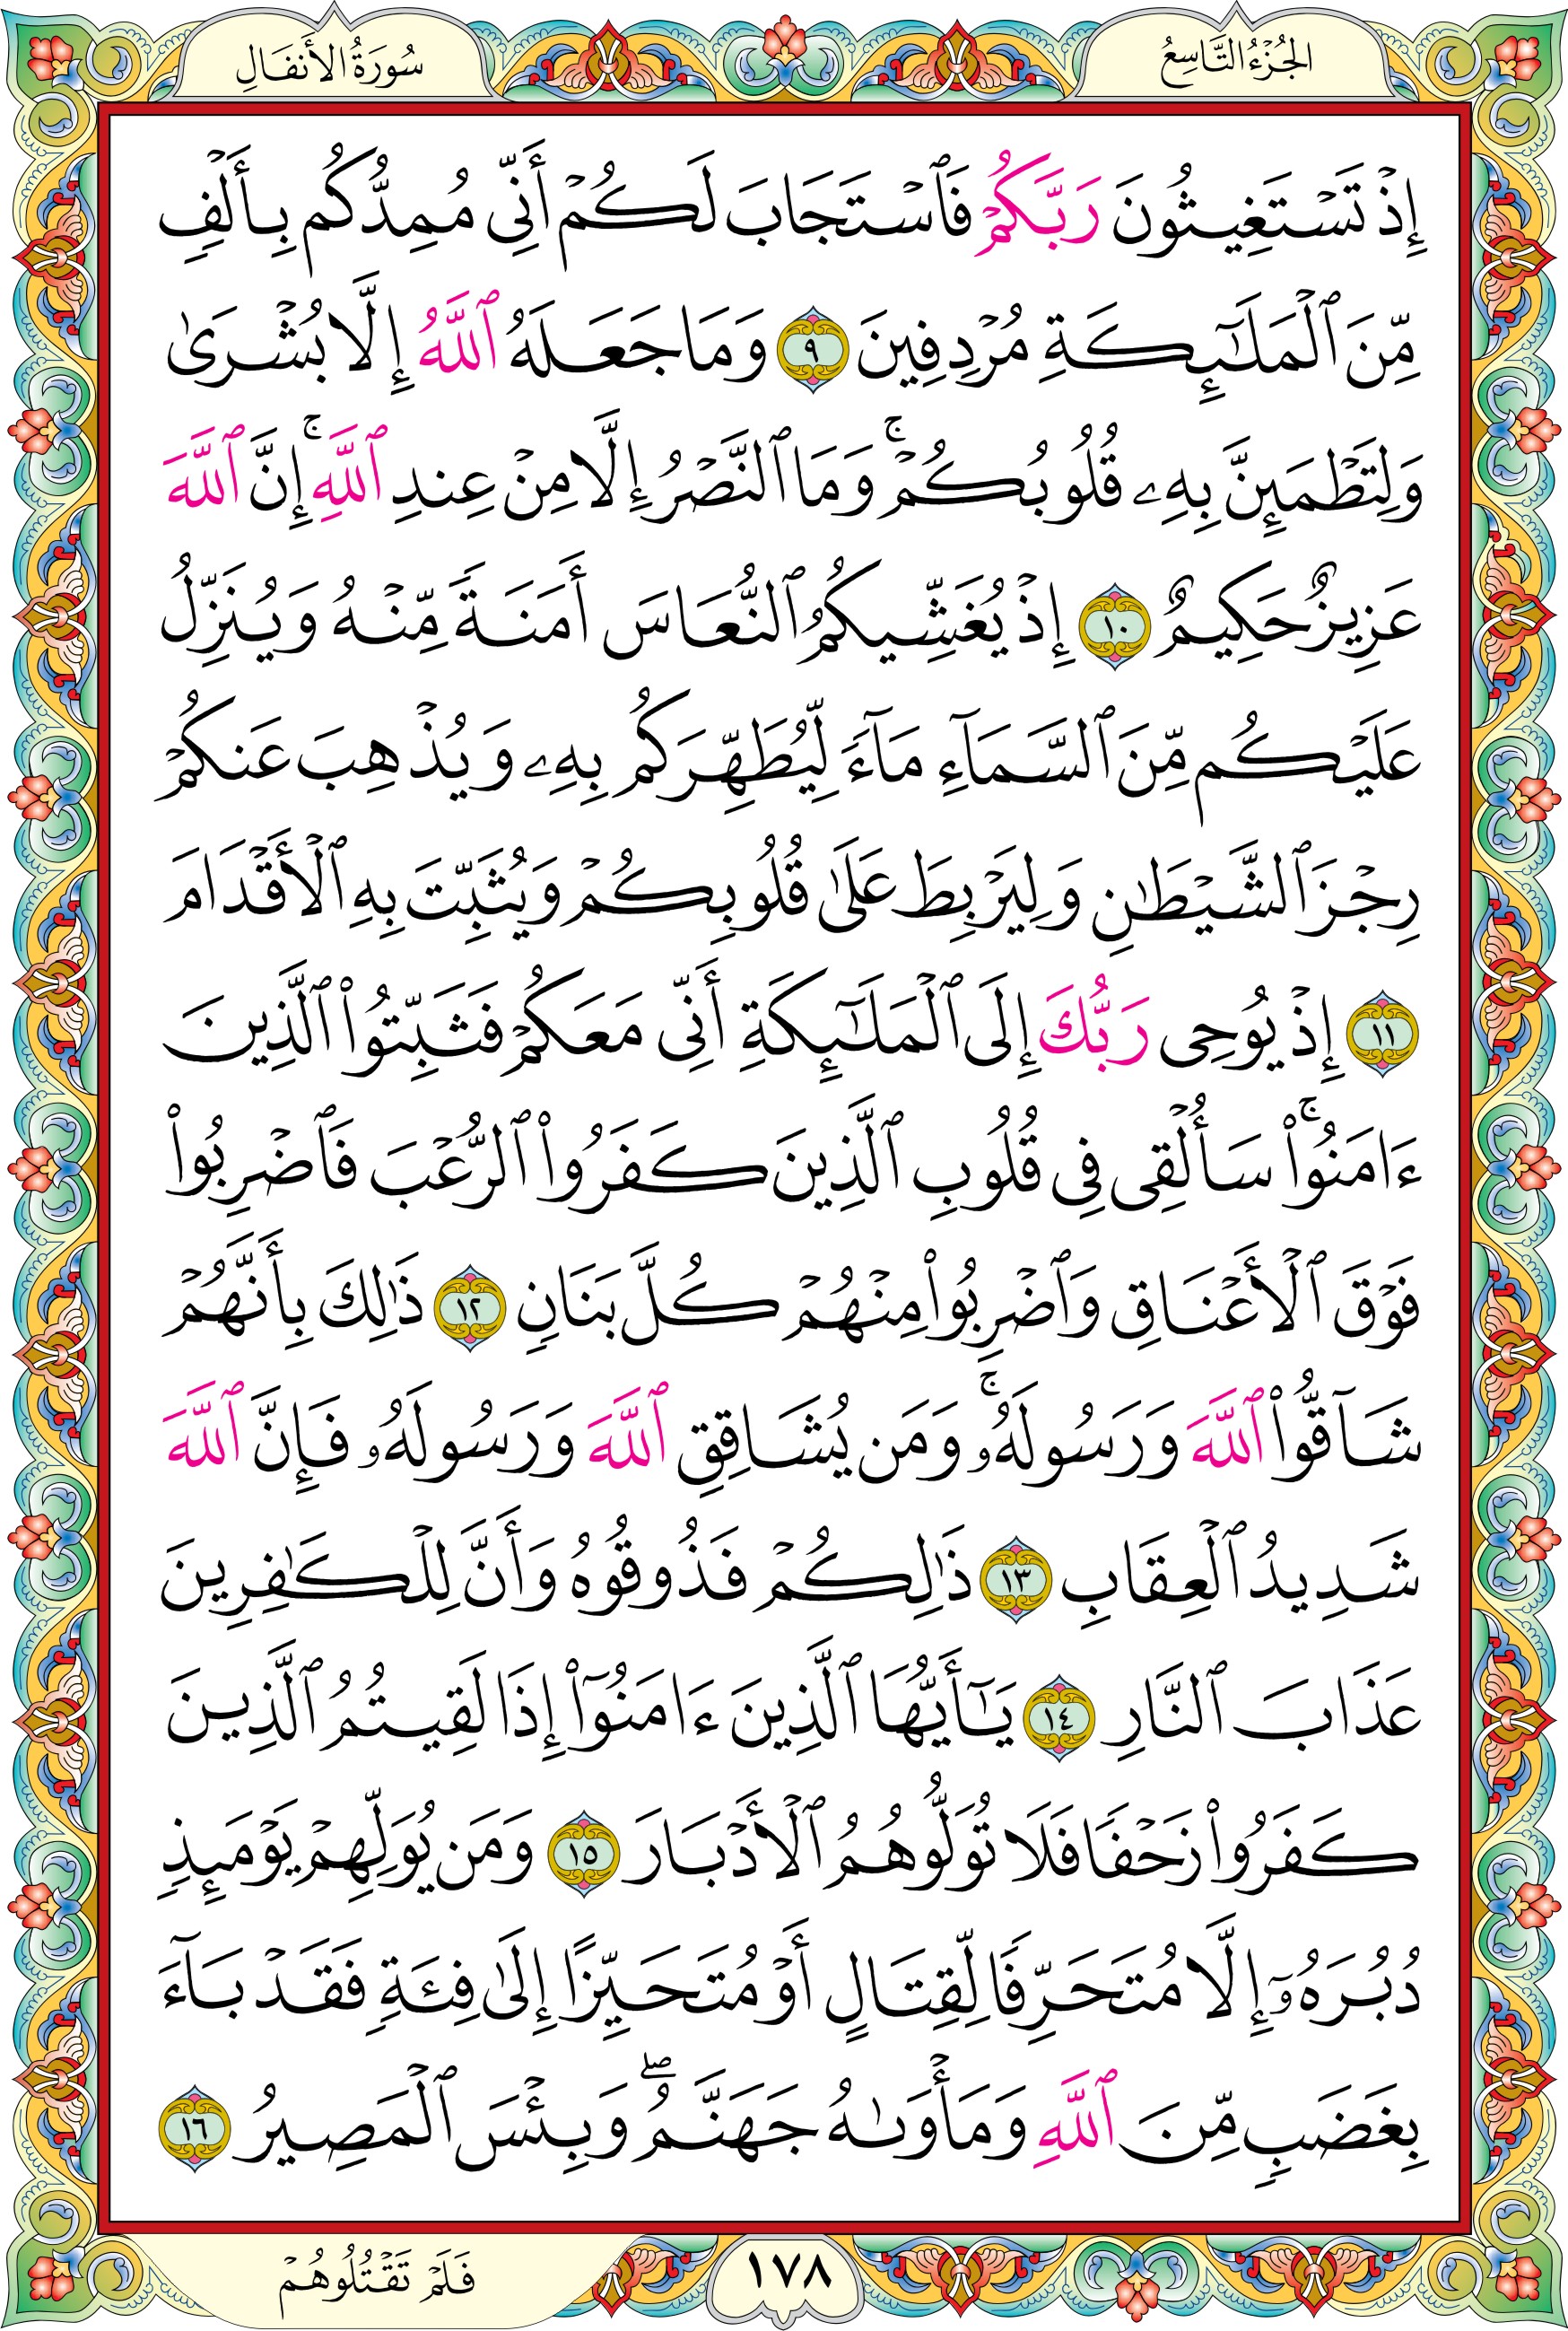 الجُزْءُ التَّاسِعُ
سُورَةُ الأَنفَالِ
إِذۡ تَسۡتَغِيثُونَ رَبَّكُمۡ فَٱسۡتَجَابَ لَكُمۡ أَنِّي مُمِدُّكُم بِأَلۡفٖ
مِّنَ ٱلۡمَلَٰٓئِكَةِ مُرۡدِفِينَ ٩ وَمَا جَعَلَهُ ٱللَّهُ إِلَّا بُشۡرَىٰ
وَلِتَطۡمَئِنَّ بِهِۦ قُلُوبُكُمۡۚ وَمَا ٱلنَّصۡرُ إِلَّا مِنۡ عِندِ ٱللَّهِۚ إِنَّ ٱللَّهَ
عَزِيزٌ حَكِيمٌ ١٠ إِذۡ يُغَشِّيكُمُ ٱلنُّعَاسَ أَمَنَةٗ مِّنۡهُ وَيُنَزِّلُ
عَلَيۡكُم مِّنَ ٱلسَّمَآءِ مَآءٗ لِّيُطَهِّرَكُم بِهِۦ وَيُذۡهِبَ عَنكُمۡ
رِجۡزَ ٱلشَّيۡطَٰنِ وَلِيَرۡبِطَ عَلَىٰ قُلُوبِكُمۡ وَيُثَبِّتَ بِهِ ٱلۡأَقۡدَامَ
١١ إِذۡ يُوحِي رَبُّكَ إِلَى ٱلۡمَلَٰٓئِكَةِ أَنِّي مَعَكُمۡ فَثَبِّتُواْ ٱلَّذِينَ
ءَامَنُواْۚ سَأُلۡقِي فِي قُلُوبِ ٱلَّذِينَ كَفَرُواْ ٱلرُّعۡبَ فَٱضۡرِبُواْ
فَوۡقَ ٱلۡأَعۡنَاقِ وَٱضۡرِبُواْ مِنۡهُمۡ كُلَّ بَنَانٖ ١٢ ذَٰلِكَ بِأَنَّهُمۡ
شَآقُّواْ ٱللَّهَ وَرَسُولَهُۥۚ وَمَن يُشَاقِقِ ٱللَّهَ وَرَسُولَهُۥ فَإِنَّ ٱللَّهَ
شَدِيدُ ٱلۡعِقَابِ ١٣ ذَٰلِكُمۡ فَذُوقُوهُ وَأَنَّ لِلۡكَٰفِرِينَ
عَذَابَ ٱلنَّارِ ١٤ يَٰٓأَيُّهَا ٱلَّذِينَ ءَامَنُوٓاْ إِذَا لَقِيتُمُ ٱلَّذِينَ
كَفَرُواْ زَحۡفٗا فَلَا تُوَلُّوهُمُ ٱلۡأَدۡبَارَ ١٥ وَمَن يُوَلِّهِمۡ يَوۡمَئِذٖ
دُبُرَهُۥٓ إِلَّا مُتَحَرِّفٗا لِّقِتَالٍ أَوۡ مُتَحَيِّزًا إِلَىٰ فِئَةٖ فَقَدۡ بَآءَ
بِغَضَبٖ مِّنَ ٱللَّهِ وَمَأۡوَىٰهُ جَهَنَّمُۖ وَبِئۡسَ ٱلۡمَصِيرُ ١٦
١٧٨
فَلَمۡ تَقۡتُلُوهُمۡ